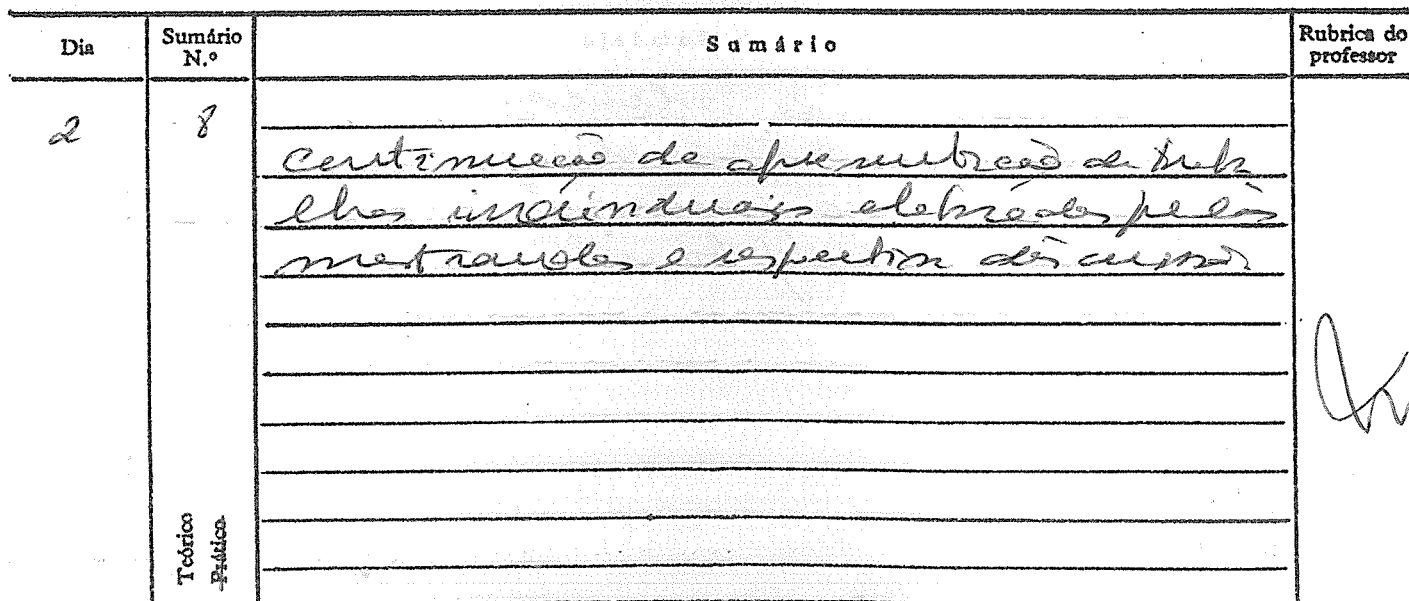 Dia
Sumário N.º
Sumário
Rubrica do professor
2
8
Continuação de apresentação de traba
lhos individuais elaborados pelos
mestrandos e respectiva discussão.
Teórico
Prático